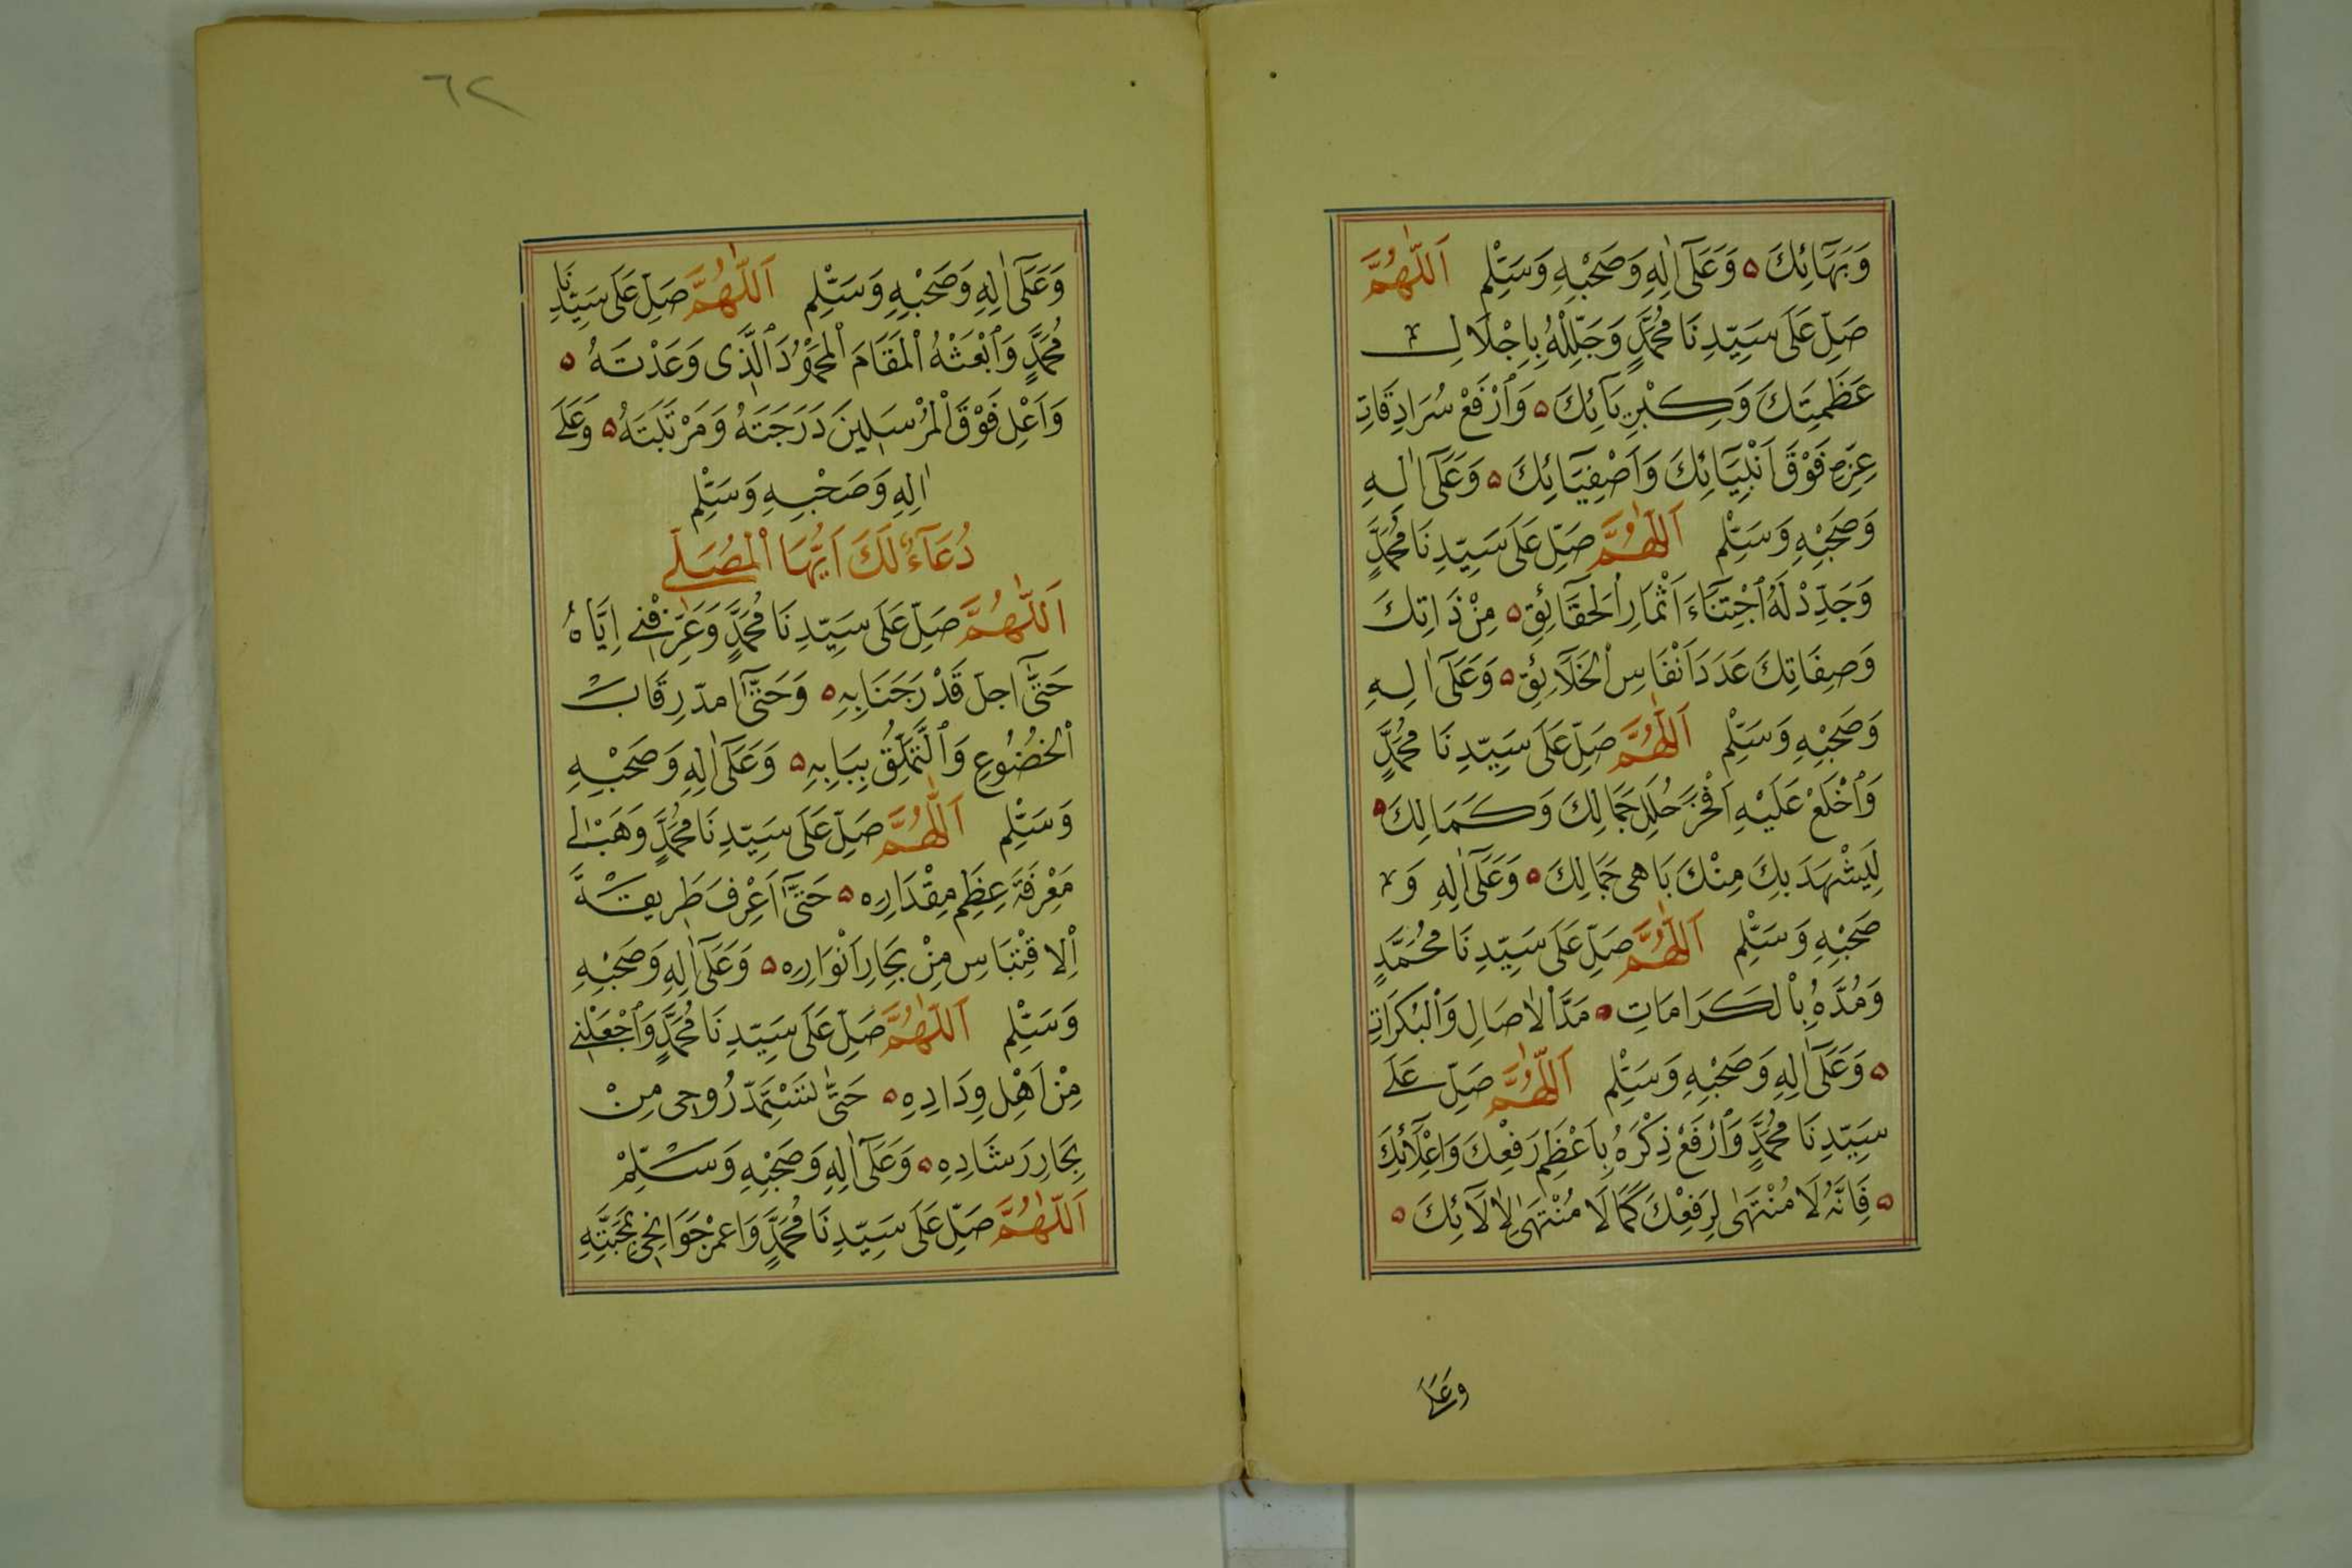 وَبَهَائِكَ ۵ وَعَلَى اٰلِهِ وَصَحْبِهِ وَسَلِّمْ اَللّٰهُمَّ
صَلِّ عَلَى سَيِّدِنَا مُحَمَّدٍ وَجَلِّلْهُ بِاِجْلَالِ
عَظَمَتِكَ وَكِبْرِيَائِكَ ۵ وَارْفَعْ سُرَادِقَاتِ
عِزِّهِ فَوْقَ اَنْبِيَائِكَ وَاَصْفِيَائِكَ ۵ وَعَلَى اٰلِهِ
وَصَحْبِهِ وَسَلِّمْ اَللّٰهُمَّ صَلِّ عَلَى سَيِّدِنَا مُحَمَّدٍ
وَجَدِّدْ لَهُ اجْتِنَاءَ اَثْمَارِ الْحَقَائِقِ ۵ مِنْ ذَاتِكَ
وَصِفَاتِكَ عَدَدَ اَنْفَاسِ الْخَلَائِقِ ۵ وَعَلَى اٰلِهِ
وَصَحْبِهِ وَسَلِّمْ اَللّٰهُمَّ صَلِّ عَلَى سَيِّدِنَا مُحَمَّدٍ
وَاخْلَعْ عَلَيْهِ اَفْخَرَ حُلَلِ جَمَالِكَ وَكَمَالِكَ ۵
لِيَشْهَدَ بِكَ مِنْكَ بَاهِى جَمَالِكَ ۵ وَعَلَى اٰلِهِ وَ
صَحْبِهِ وَسَلِّمْ اَللّٰهُمَّ صَلِّ عَلَى سَيِّدِنَا مُحَمَّدٍ
وَمُدَّهُ بِالْكَرَامَاتِ ۵ مَدَّ الْاٰصَالِ وَالْبُكَرَاتِ
۵ وَعَلَى اٰلِهِ وَصَحْبِهِ وَسَلِّمْ اَللّٰهُمَّ صَلِّ عَلَى
سَيِّدِنَا مُحَمَّدٍ وَارْفَعْ ذِكْرَهُ بِاَعْظَمِ رَفْعِكَ وَاِعْلَائِكَ
۵ فَاِنَّهُ لَا مُنْتَهٰى لِرَفْعِكَ كَمَا لَا مُنْتَهٰى لِاٰلَائِكَ ۵
وعلى
٦٢
وَعَلَى اٰلِهِ وَصَحْبِهِ وَسَلِّمْ اَللّٰهُمَّ صَلِّ عَلَى سَيِّدِنَا
مُحَمَّدٍ وَابْعَثْهُ الْمَقَامَ الْمَحْمُودَ الَّذِى وَعَدْتَهُ ۵
وَاَعْلِ فَوْقَ الْمُرْسَلِينَ دَرَجَتَهُ وَمَرْتَبَتَهُ ۵ وَعَلَى
اٰلِهِ وَصَحْبِهِ وَسَلِّمْ
دُعَاءٌ لَكَ اَيُّهَا الْمُصَلِّى
اَللّٰهُمَّ صَلِّ عَلَى سَيِّدِنَا مُحَمَّدٍ وَعَرِّفْنِى اِيَّاهُ
حَتَّى اجلّ قَدْرَ جَنَابِهِ ۵ وَحَتَّى امدّ رِقَابَ
الْخُضُوعِ وَالتَّمَلُّقِ بِبَابِهِ ۵ وَعَلَى اٰلِهِ وَصَحْبِهِ
وَسَلِّمْ اَللّٰهُمَّ صَلِّ عَلَى سَيِّدِنَا مُحَمَّدٍ وَهَبْ لِى
مَعْرِفَةَ عِظَمِ مِقْدَارِهِ ۵ حَتَّى اَعْرِفَ طَرِيقَةَ
الِاقْتِبَاسِ مِنْ بِحَارِ اَنْوَارِهِ ۵ وَعَلَى اٰلِهِ وَصَحْبِهِ
وَسَلِّمْ اَللّٰهُمَّ صَلِّ عَلَى سَيِّدِنَا مُحَمَّدٍ وَاجْعَلْنِى
مِنْ اَهْلِ وِدَادِهِ ۵ حَتَّى تَسْتَمِدَّ رُوحِى مِنْ
بِحَارِ رَشَادِهِ ۵ وَعَلَى اٰلِهِ وَصَحْبِهِ وَسَلِّمْ
اَللّٰهُمَّ صَلِّ عَلَى سَيِّدِنَا مُحَمَّدٍ وَاعمر جَوَانِحِى بِمَحَبَّتِهِ